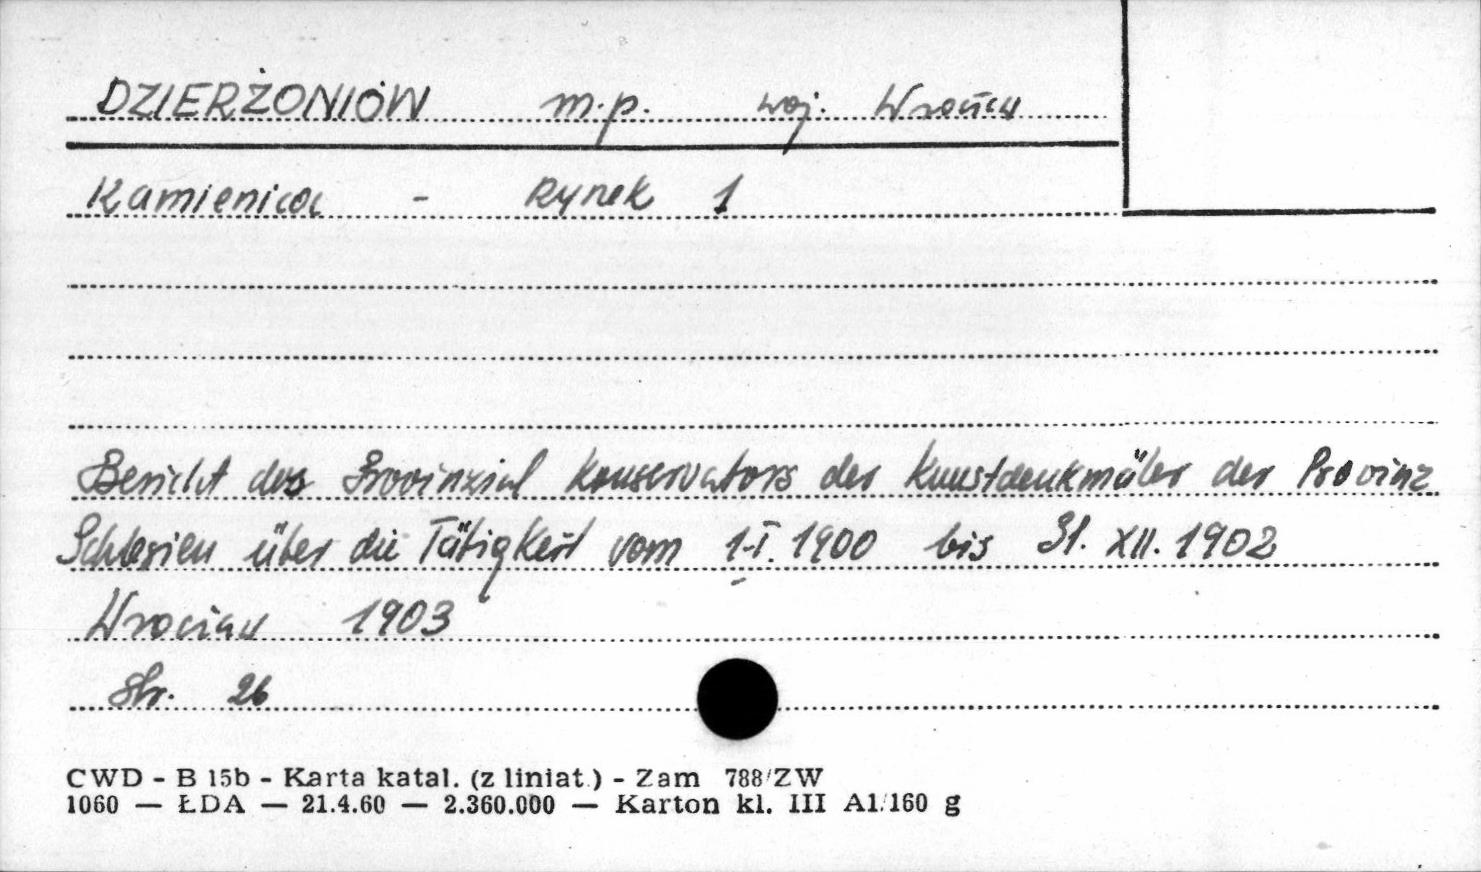 DZIERŻONIÓW m.p. woj. Wrocław
Kamienica - Rynek 1
Bericht des Provinzial Konservators der Kunstdenkmäler der Provinz
Schlesien über die Tätigkeit vom 1.I. 1900 bis 31. XII. 1902
Wrocław 1903
Str. 26
CWD - B 15b - Karta katal. (z liniat.) - Zam 788/ZW
1060 — ŁDA — 21.4.60 — 2.360.000 — Karton kl. III A1/160 g